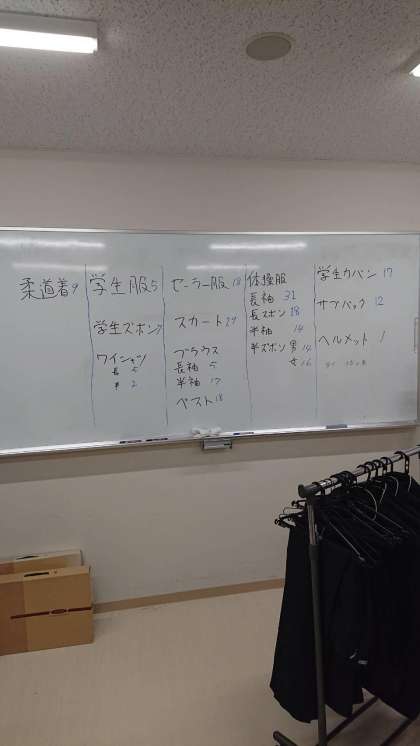 柔道着9
学生服5
学生ズボン7
ワイシャツ
長 5
半 2
セーラー服18
スカート29
ブラウス
長袖 5
半袖 17
ベスト18
体操服
長袖 31
長ズボン 18
半袖 14
半ズボン 男 14
女 16
学生カバン 17
サブバック 12
ヘルメット 1